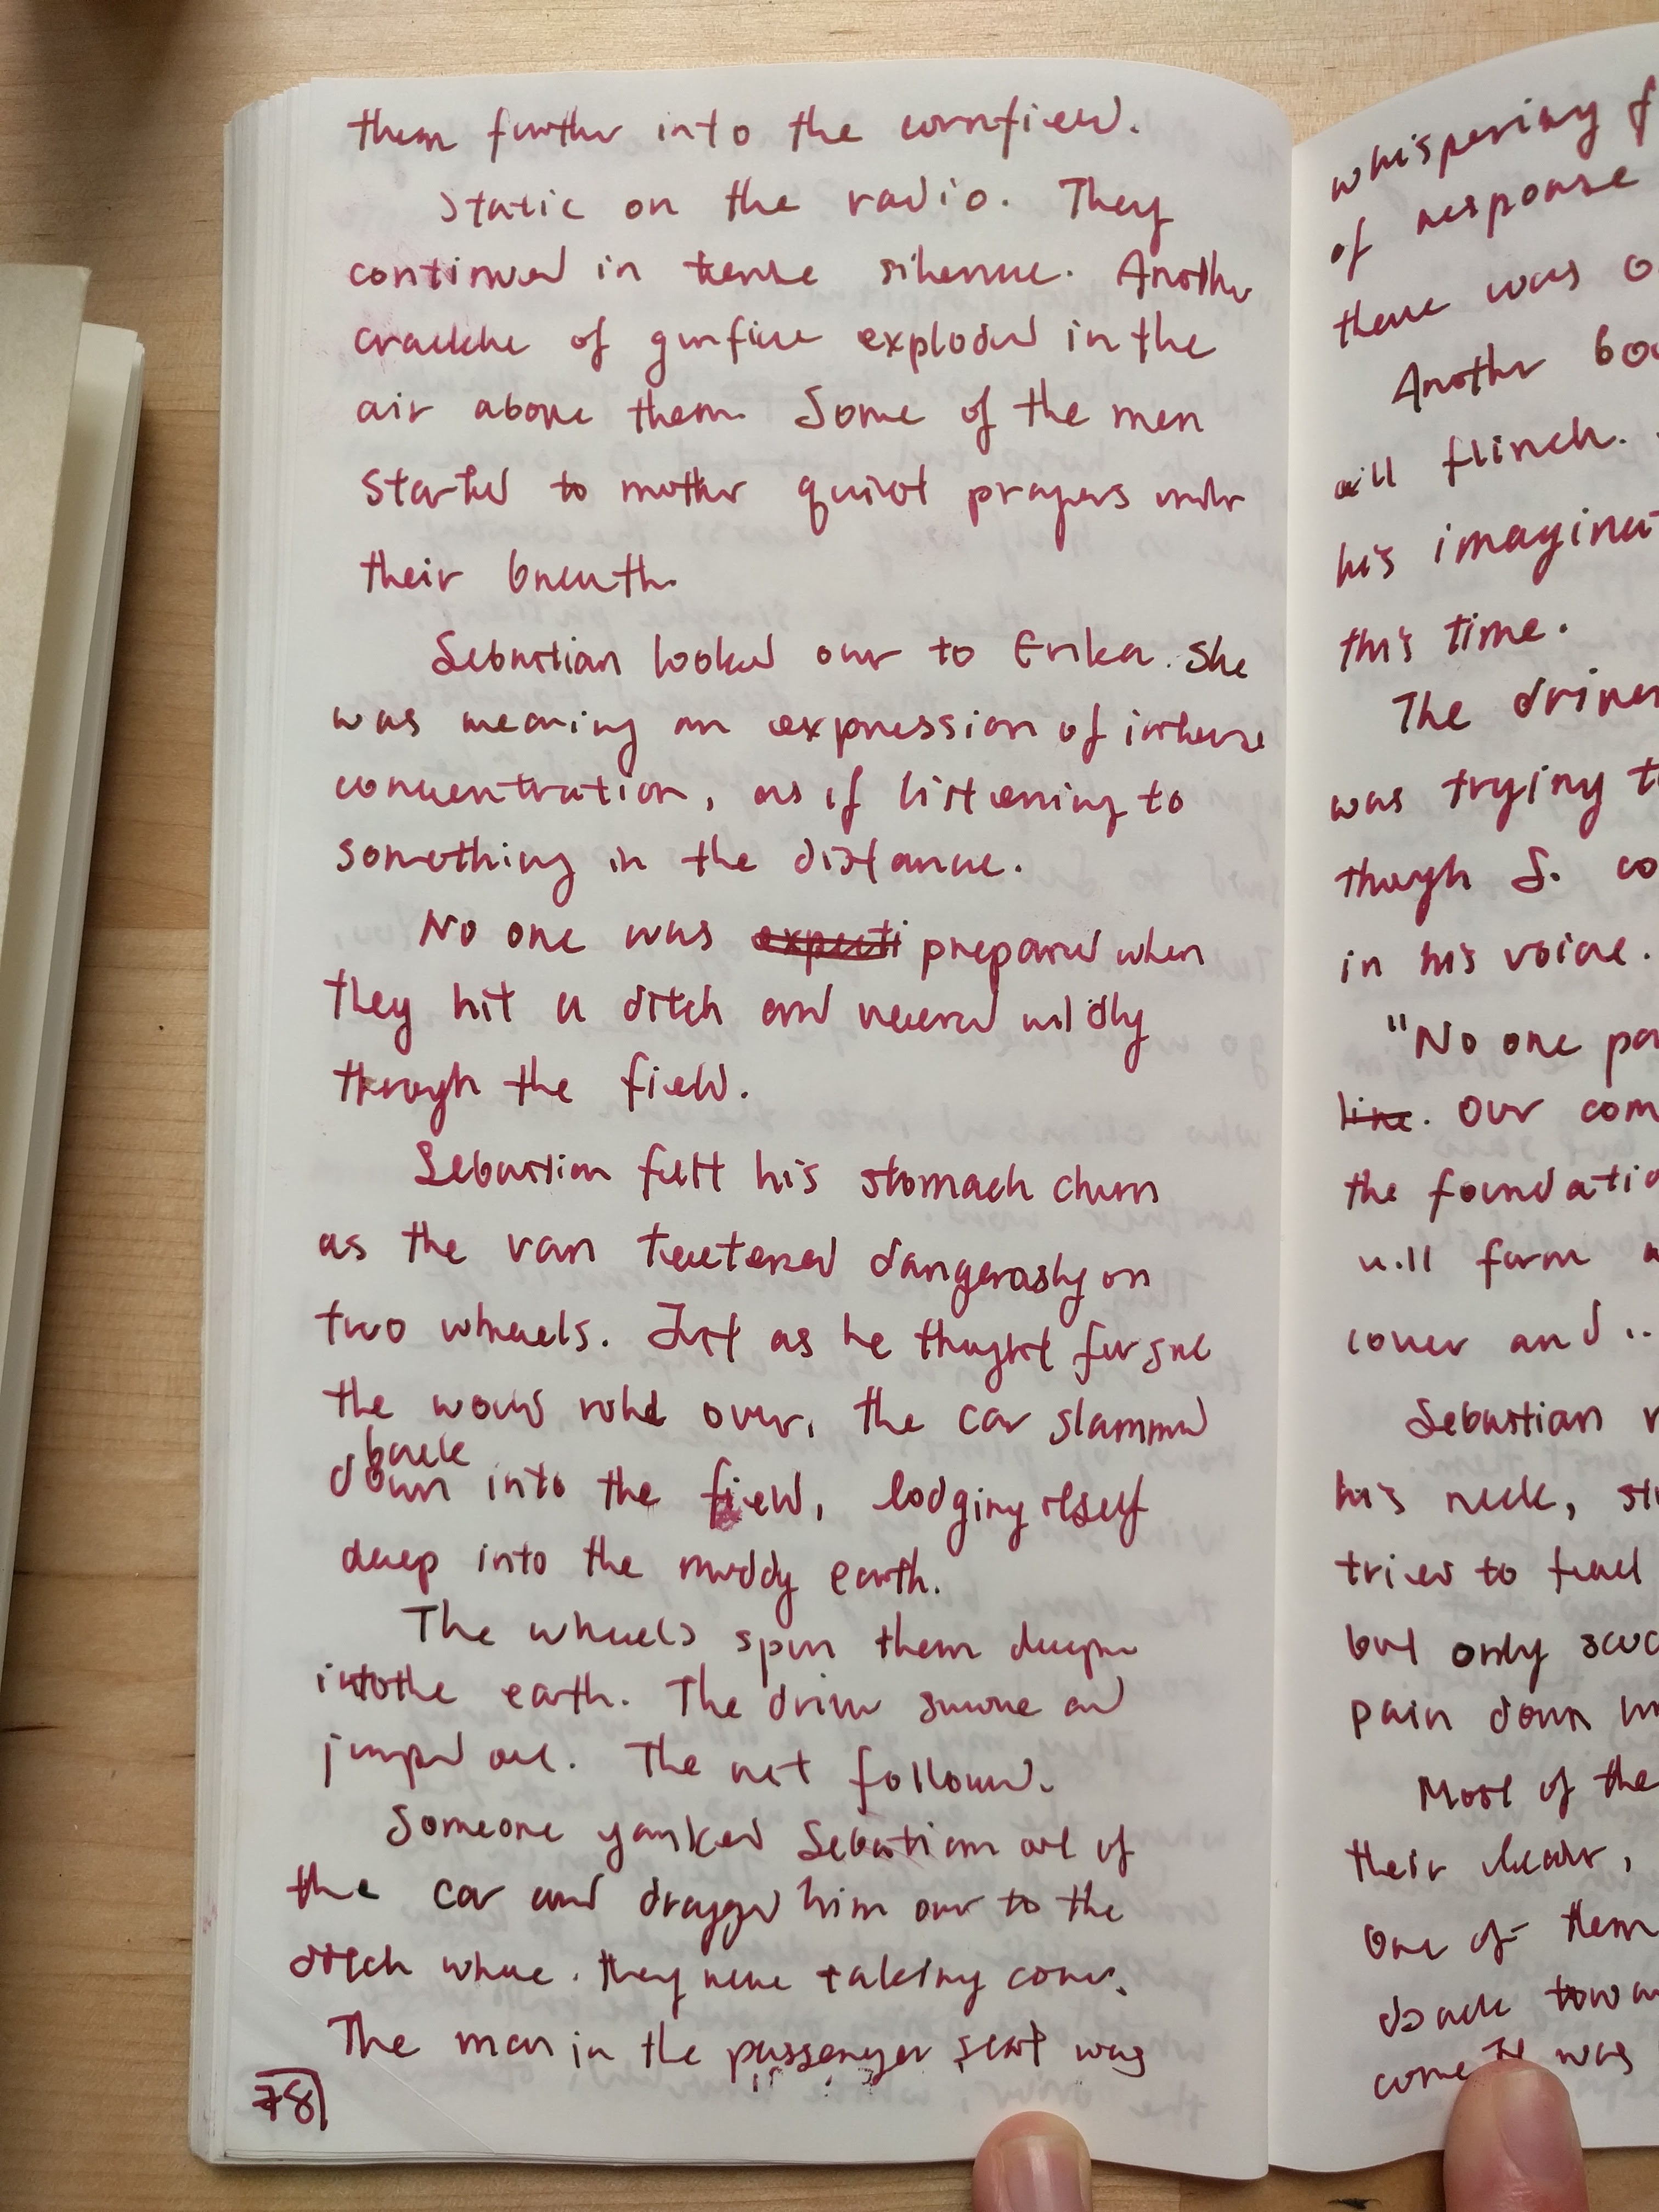 them further into the cornfield.
Static on the radio. They
continued in tense silence. Another
crackle of gunfire exploded in the
air above them. Some of the men
started to mutter quiet prayers under
their breath.
Sebastian looked over to Erika. She
was wearing an expression of intense
concentration, as if listening to
something in the distance.
No one was expecti prepared when
they hit a ditch and veered wildly
through the field.
Sebastian felt his stomach churn
as the van teetered dangerously on
two wheels. Just as he thought for sure
the would rolled over, the car slammed
back
down into the field, lodging itself
deep into the muddy earth.
The wheels spun them deeper
into the earth. The driver swore and
jumped out. The rest followed.
Someone yanked Sebastian out of
the car and dragged him over to the
ditch where they were taking cover.
The man in the passenger seat was
78
whispering f
of response
there was o
Another bou
will flinch.
his imaginat
this time.
The driver
was trying t
though S. co
in his voice.
"No one pa
line. Our com
the foundatio
will form a
cover and ..
Sebastian r
his neck, str
tried to feel
but only succ
pain down
Most of the
their leader,
One of them
back towa
come was